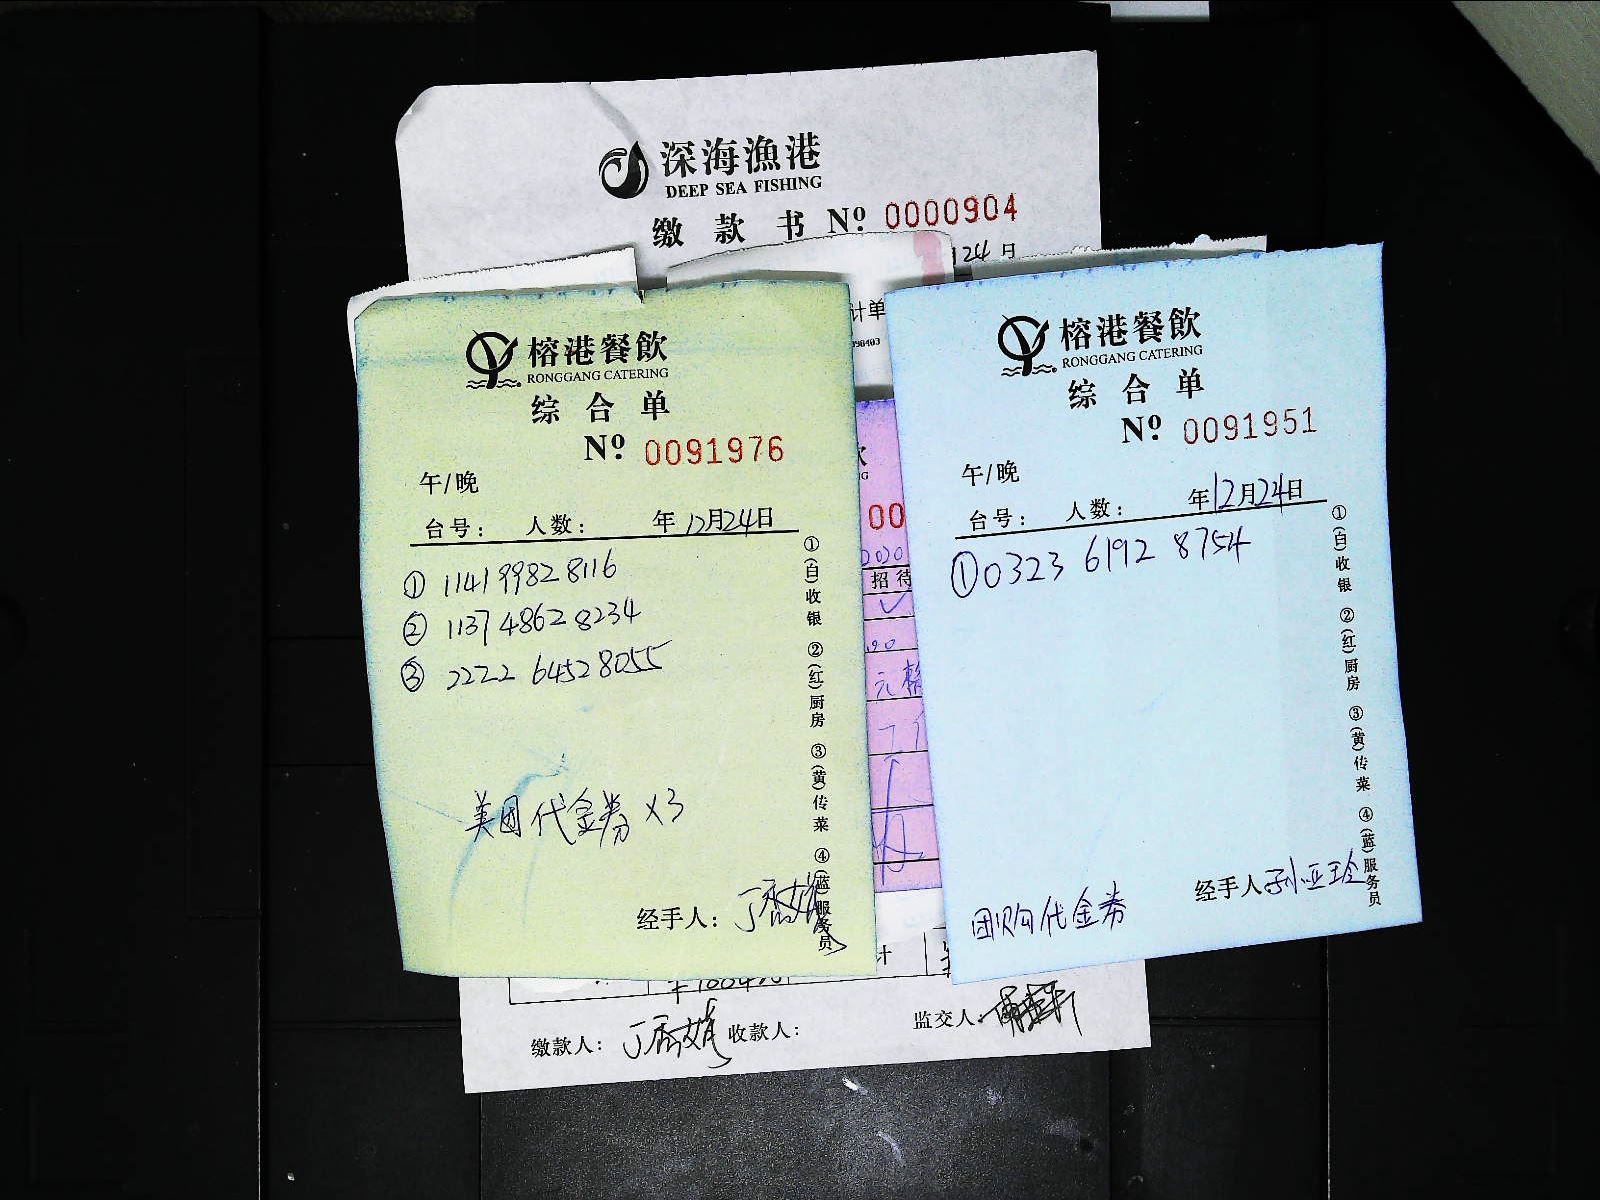 深海漁港
DEEP SEA FISHING
缴款书 Nº 0000904
24日
计单
榕港餐飲
RONGGANG CATERING
综合单
Nº 0091976
午/晚
台号： 人数： 年12月24日
① 1141 9982 8116
② 1137 4862 8234
③ 2222 6452 8055
美团代金券 X3
经手人：丁香娥
①(白)收银 ②(红)厨房 ③(黄)传菜 ④(蓝)服务员
00
2020
招待
元整
榕港餐飲
RONGGANG CATERING
综合单
Nº 0091951
午/晚
台号： 人数： 年12月24日
①0323 6192 8754
团购代金券
经手人 孙亚玲
①(白)收银 ②(红)厨房 ③(黄)传菜 ④(蓝)服务员
计
缴款人：丁香娥 收款人： 监交人：